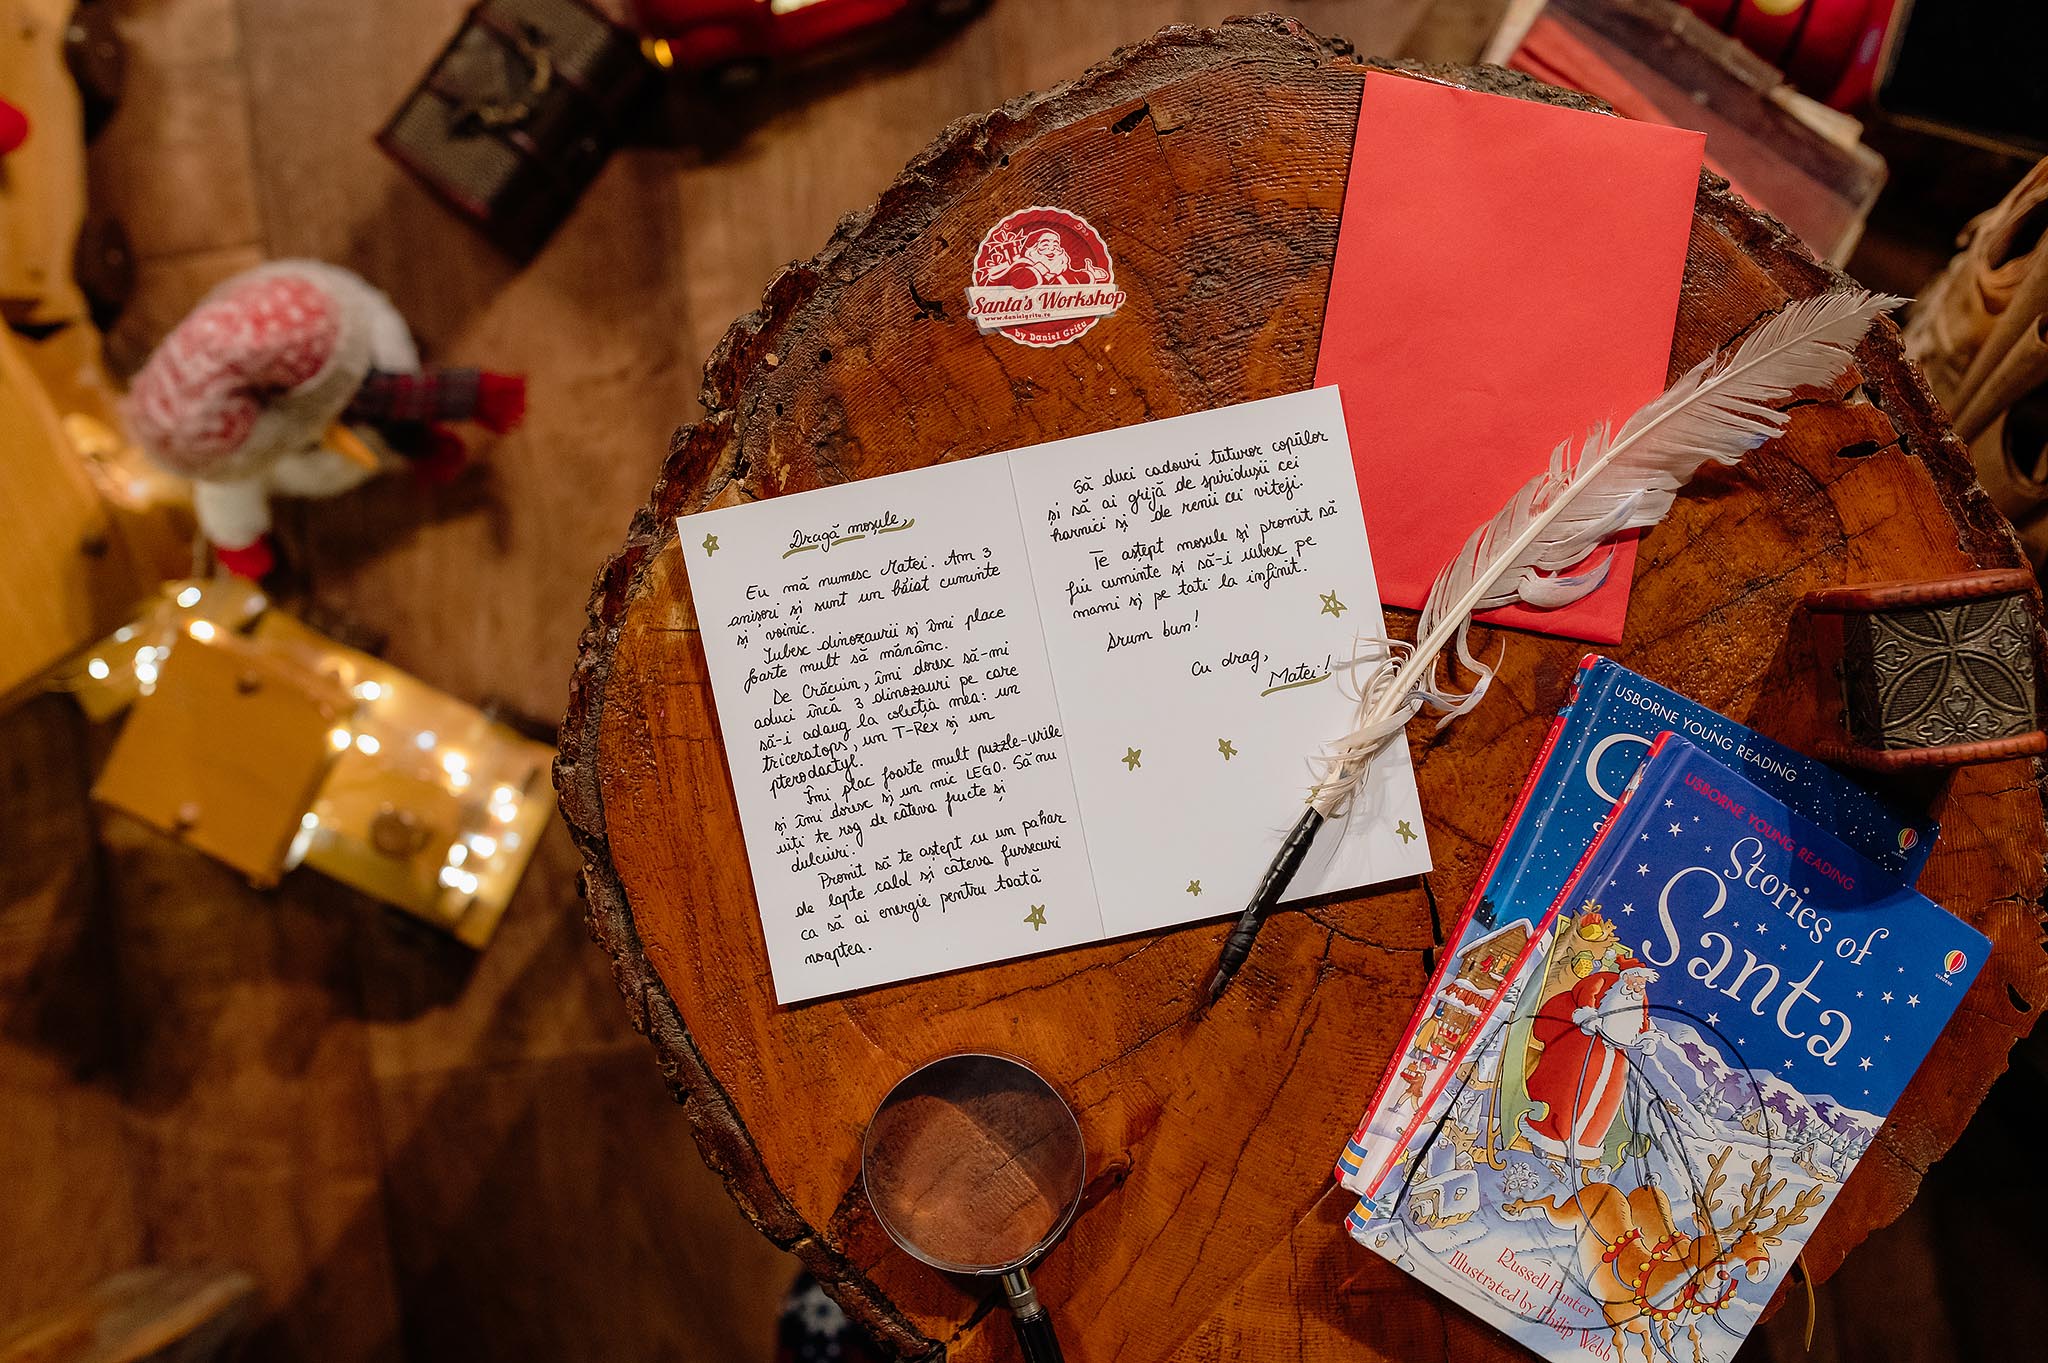 Santa's Workshop
www.danielgritu.ro
by Daniel Gritu
Dragă moșule,
Eu mă numesc Matei. Am 3
anișori și sunt un băiat cuminte
și voinic.
Iubesc dinozaurii și îmi place
foarte mult să mănânc.
De Crăciun, îmi doresc să-mi
aduci încă 3 dinozauri pe care
să-i adaug la colecția mea: un
triceratops, un T-Rex și un
pterodactyl.
Îmi plac foarte mult puzzle-urile
și îmi doresc și un mic LEGO. Să nu
uiți te rog de câteva fructe și
dulciuri.
Promit să te aștept cu un pahar
de lapte cald și câteva fursecuri
ca să ai energie pentru toată
noaptea.
Să duci cadouri tuturor copiilor
și să ai grijă de spiridușii cei
harnici și de renii cei viteji.
Te aștept moșule și promit să
fiu cuminte și să-i iubesc pe
mami și pe tati la infinit.
Drum bun!
Cu drag,
Matei!
USBORNE YOUNG READING
USBORNE YOUNG READING
Stories of
Santa
USBORNE
Russell Punter
Illustrated by Philip Webb